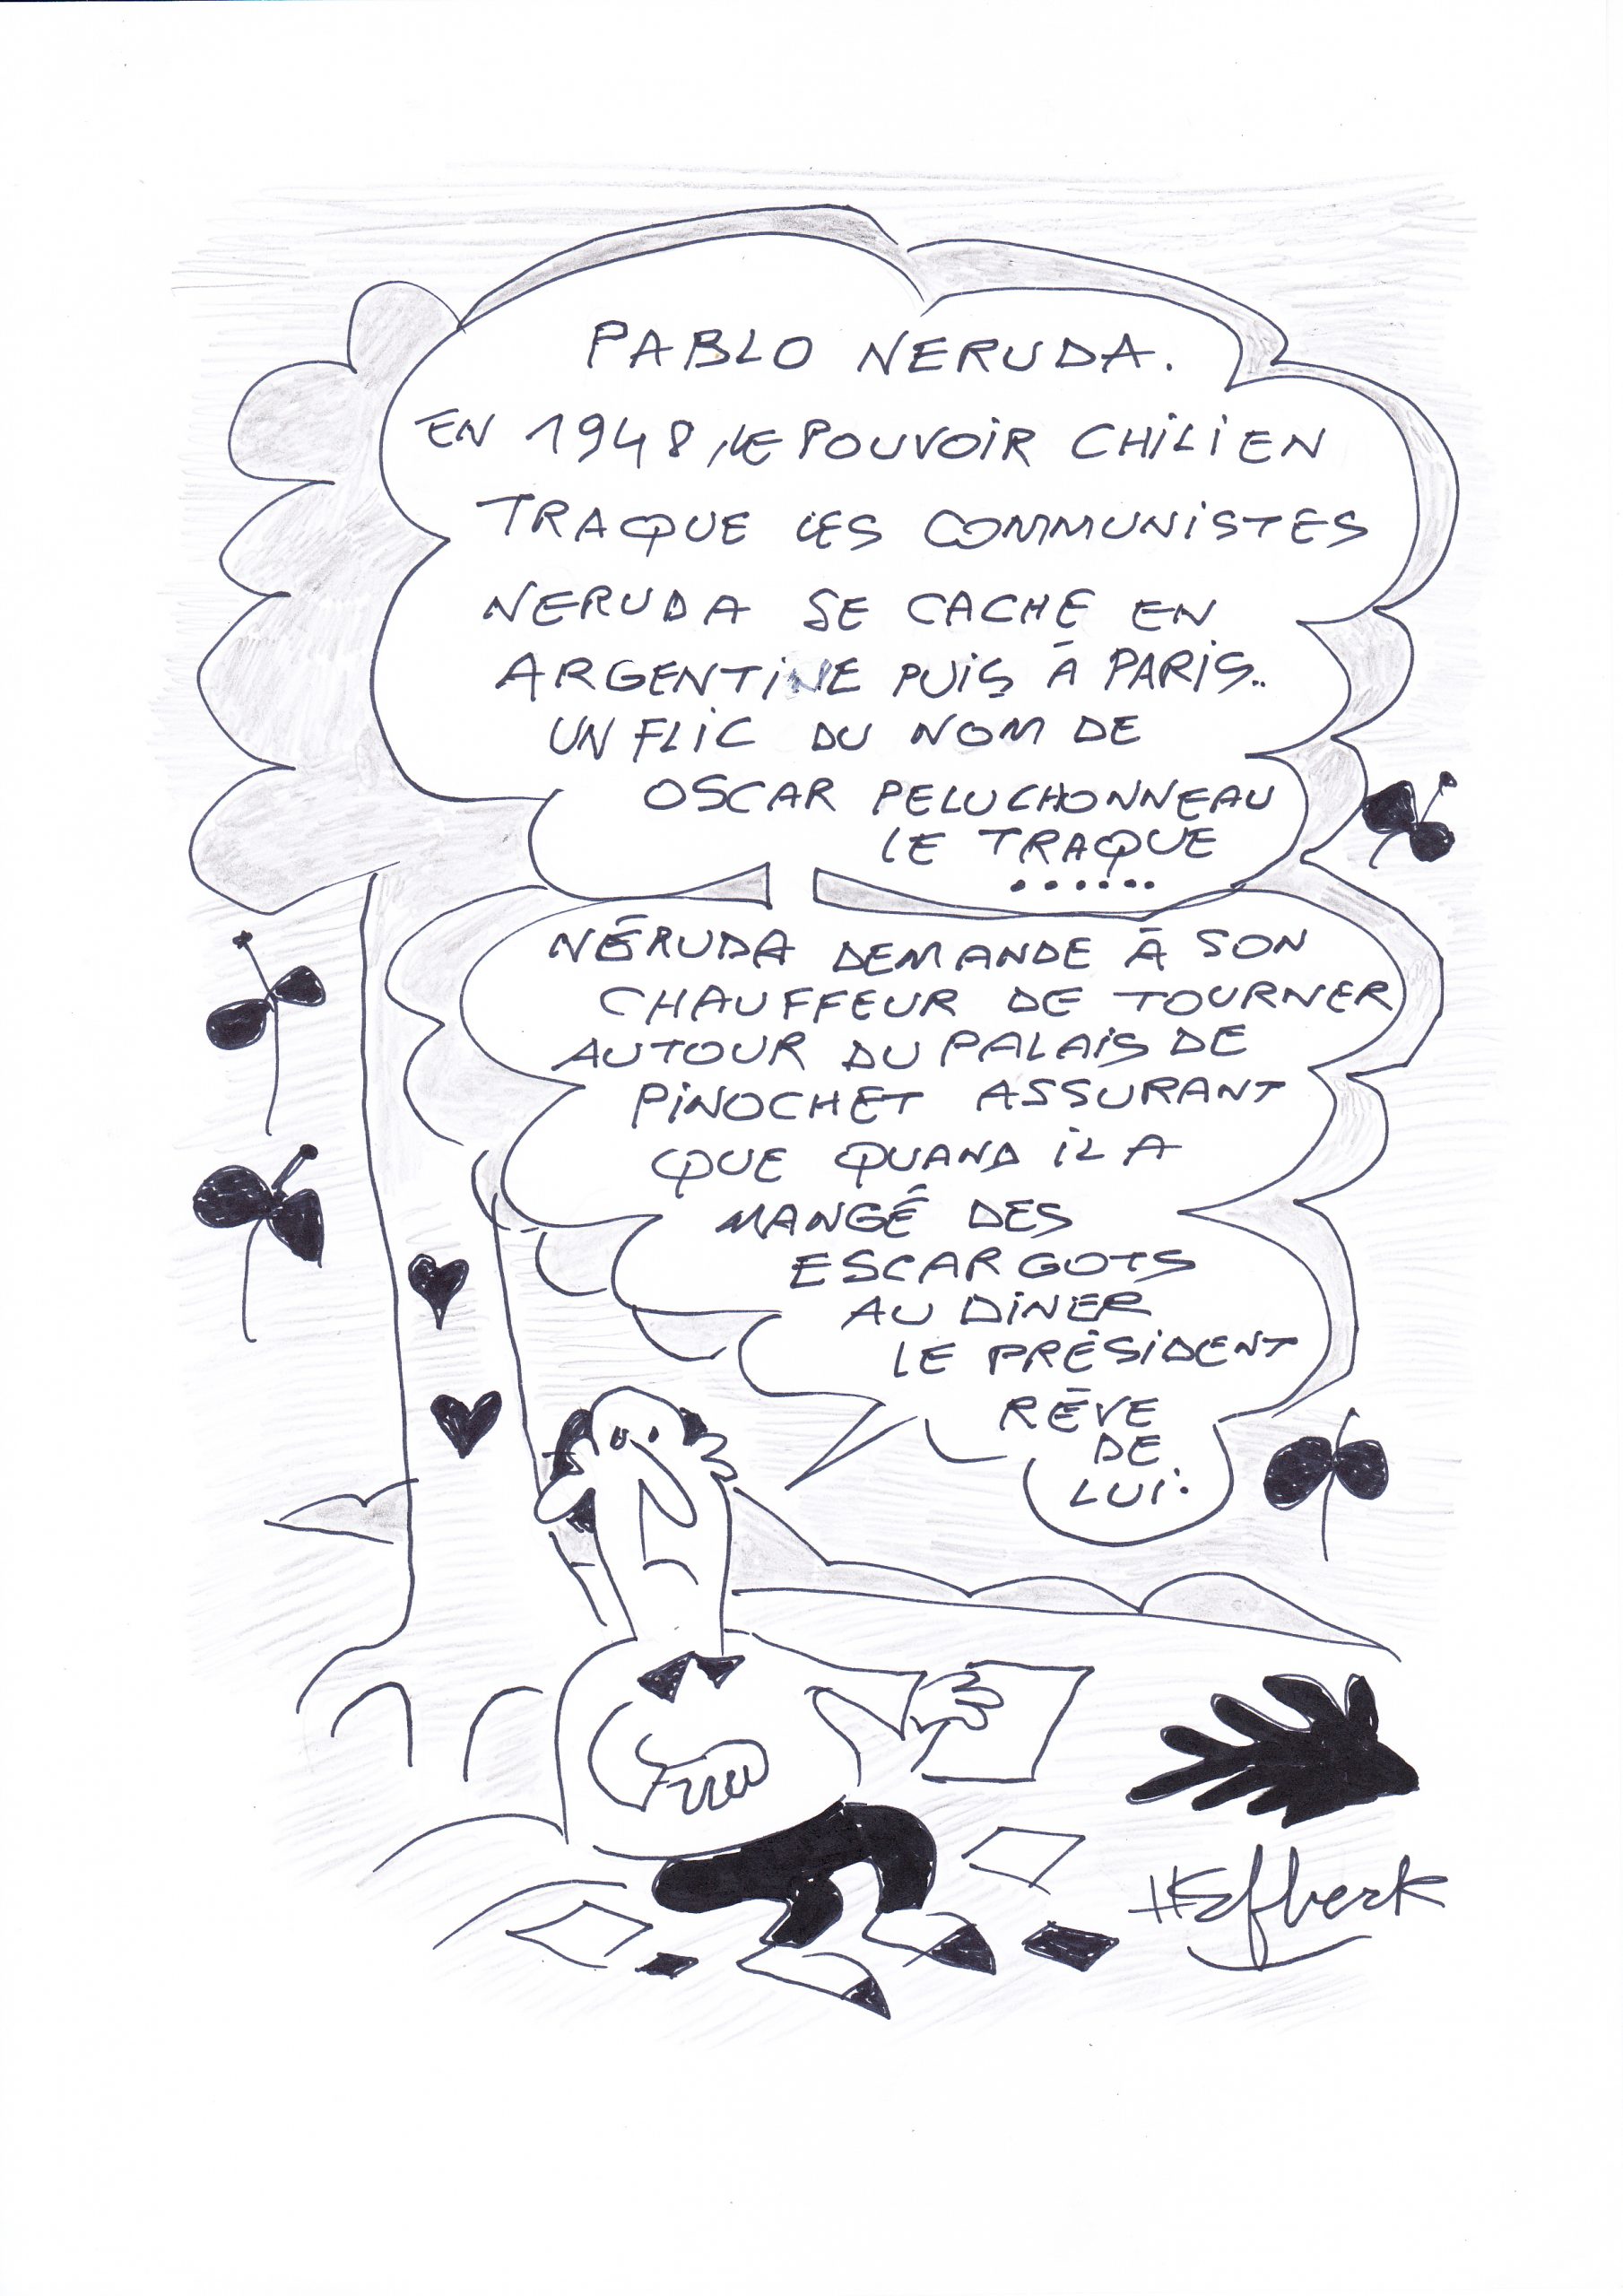 PABLO NERUDA.
EN 1948, LE POUVOIR CHILIEN
TRAQUE LES COMMUNISTES
NERUDA SE CACHE EN
ARGENTINE PUIS À PARIS..
UN FLIC DU NOM DE
OSCAR PELUCHONNEAU
LE TRAQUE
......
NÉRUDA DEMANDE À SON
CHAUFFEUR DE TOURNER
AUTOUR DU PALAIS DE
PINOCHET ASSURANT
QUE QUAND IL A
MANGÉ DES
ESCARGOTS
AU DINER
LE PRÉSIDENT
RÊVE
DE
LUI.